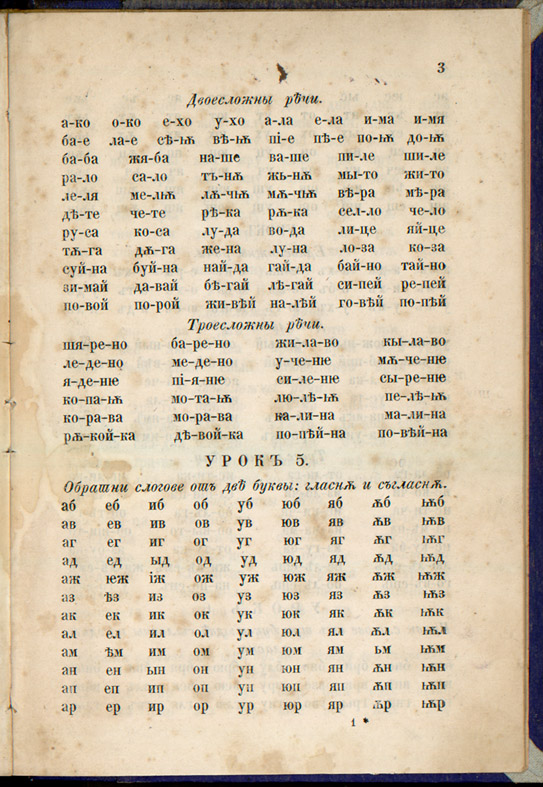 3
Двоесложны рѣчи.
а-ко о-ко е-хо у-хо а-ла е-ла и-ма и-мя
ба-е ла-е сѣ-ѭ вѣ-ѭ пі-е пѣ-е по-ѭ до-ѭ
ба-ба жя-ба на-ше ва-ше пи-ле ши-ле
ра-ло са-ло тъ-нѫ жь-нѫ мы-то жи-то
ле-ля ме-лѭ лѫ-чѭ мѫ-чѭ вѣ-ра мѣ-ра
дѣ-те че-те рѣ-ка рѫ-ка сел-ло че-ло
ру-са ко-са лу-да во-да ли-це яй-це
тѫ-га дѫ-га же-на лу-на ло-за ко-за
суй-на буй-на най-да гай-да бай-но тай-но
зи-май да-вай бѣ-гай лѣ-гай си-пей ре-пей
по-вой по-рой жи-вѣй на-лѣй го-вѣй по-пѣй
Троесложны рѣчи.
шя-ре-но ба-ре-но жи-ла-во кы-ла-во
ле-де-но ме-де-но у-че-ніе мѫ-че-ніе
я-де-ніе пі-я-ніе си-ле-ніе сы-ре-ніе
ко-па-ѭ мо-та-ѭ лю-лѣ-ѭ пе-лѣ-ѭ
ко-ра-ва мо-ра-ва ка-ли-на ма-ли-на
рѫ-кой-ка дѣ-вой-ка по-пѣй-на по-вѣй-на
УРОКЪ 5.
Обратни слогове отъ двѣ буквы: гласнѫ и съгласнѫ.
аб еб иб об уб юб яб ѫб ѭб
ав ев ив ов ув юв яв ѫв ѭв
аг ег иг ог уг юг яг ѫг ѭг
ад ед ыд од уд юд яд ѫд ѭд
аж ѥж іж ож уж юж яж ѫж ѭж
аз ѣз из оз уз юз яз ѫз ѭз
ак ек ик ок ук юк як ѫк ѭк
ал ел ил ол ул юл ял ѫл ѭл
ам ѣм им ом ум юм ям ьм ѭм
ан ен ын он ун юн ян ѫн ѭн
ап еп ип оп уп юп яп ѫп ѭп
ар ер ир ор ур юр яр ѫр ѭр
1 *